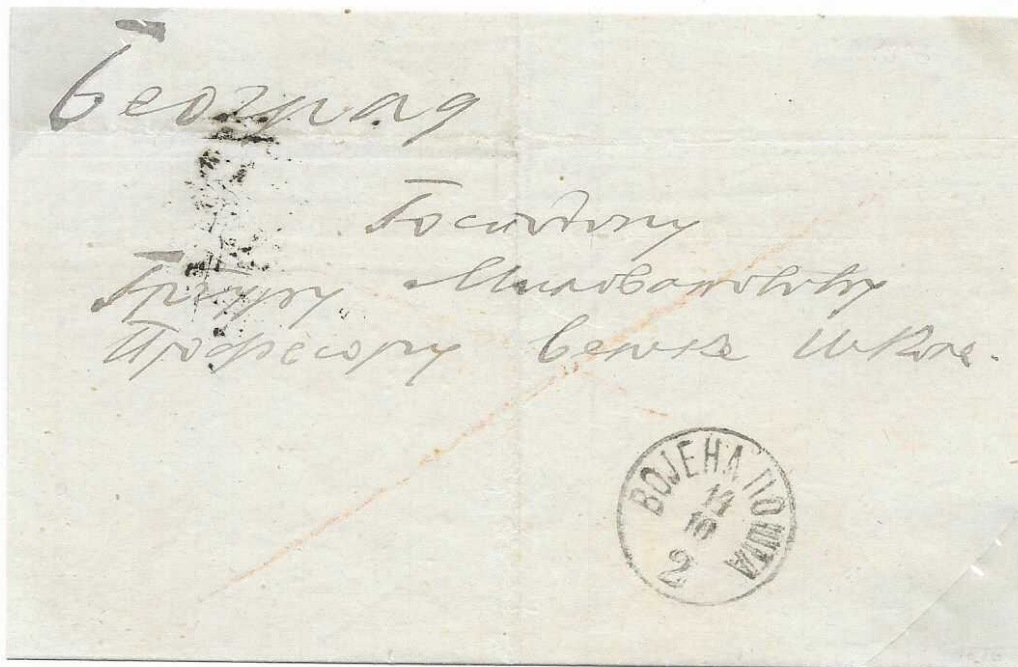 Београд
Господину
Глигорију Миловановићу
Професору Велике Школе.
ВОЈЕНА ПОШТА
14
10
2